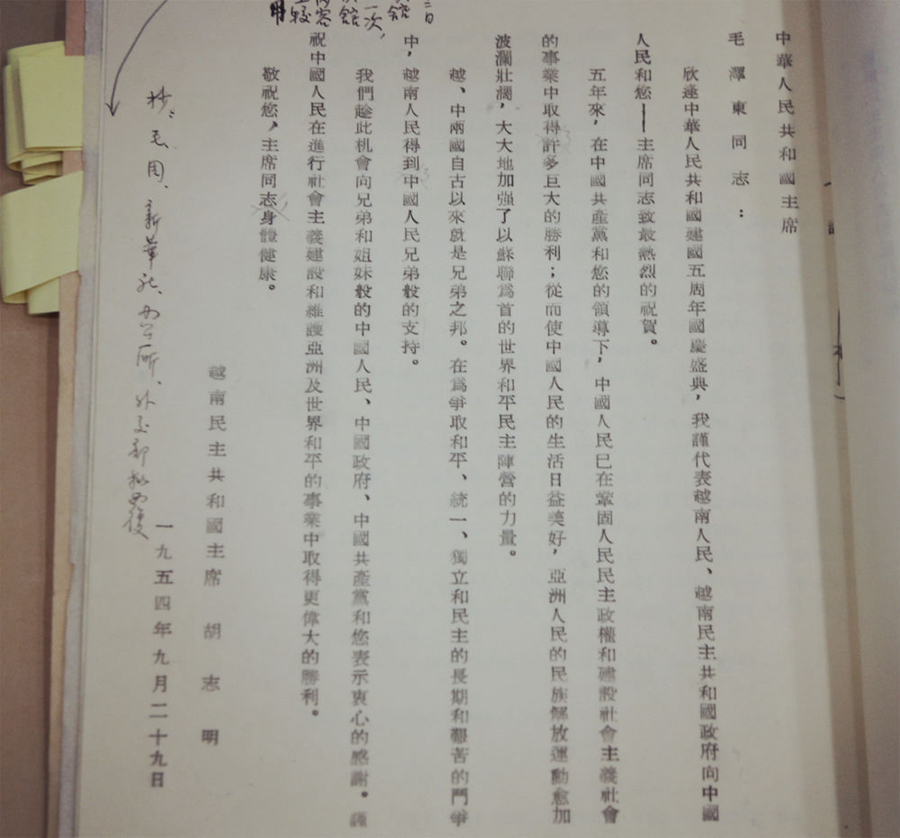 中華人民共和國主席
毛澤東同志:
欣逢中華人民共和國建國五周年國慶盛典,我謹代表越南人民、越南民主共和國政府向中國
人民和您——主席同志致最熱烈的祝賀。
五年來,在中國共產黨和您的領導下,中國人民已在鞏固人民民主政權和建設社會主義社會
的事業中取得許多巨大的勝利;從而使中國人民的生活日益美好,亞洲人民的民族解放運動愈加
波瀾壯濶,大大地加强了以蘇聯爲首的世界和平民主陣營的力量。
越、中兩國自古以來就是兄弟之邦。在爲爭取和平、統一、獨立和民主的長期和艱苦的鬥爭
中,越南人民得到中國人民兄弟般的支持。
我們趁此机會向兄弟和姐妹般的中國人民、中國政府、中國共產黨和您表示衷心的感謝。謹
祝中國人民在進行社會主義建設和維護亞洲及世界和平的事業中取得更偉大的勝利。
敬祝您,主席同志身體健康。
越南民主共和國主席 胡志明
一九五四年九月二十九日
二日
館
一次,
館
內容
較
用
抄:毛周、新華社、办公所、外交部